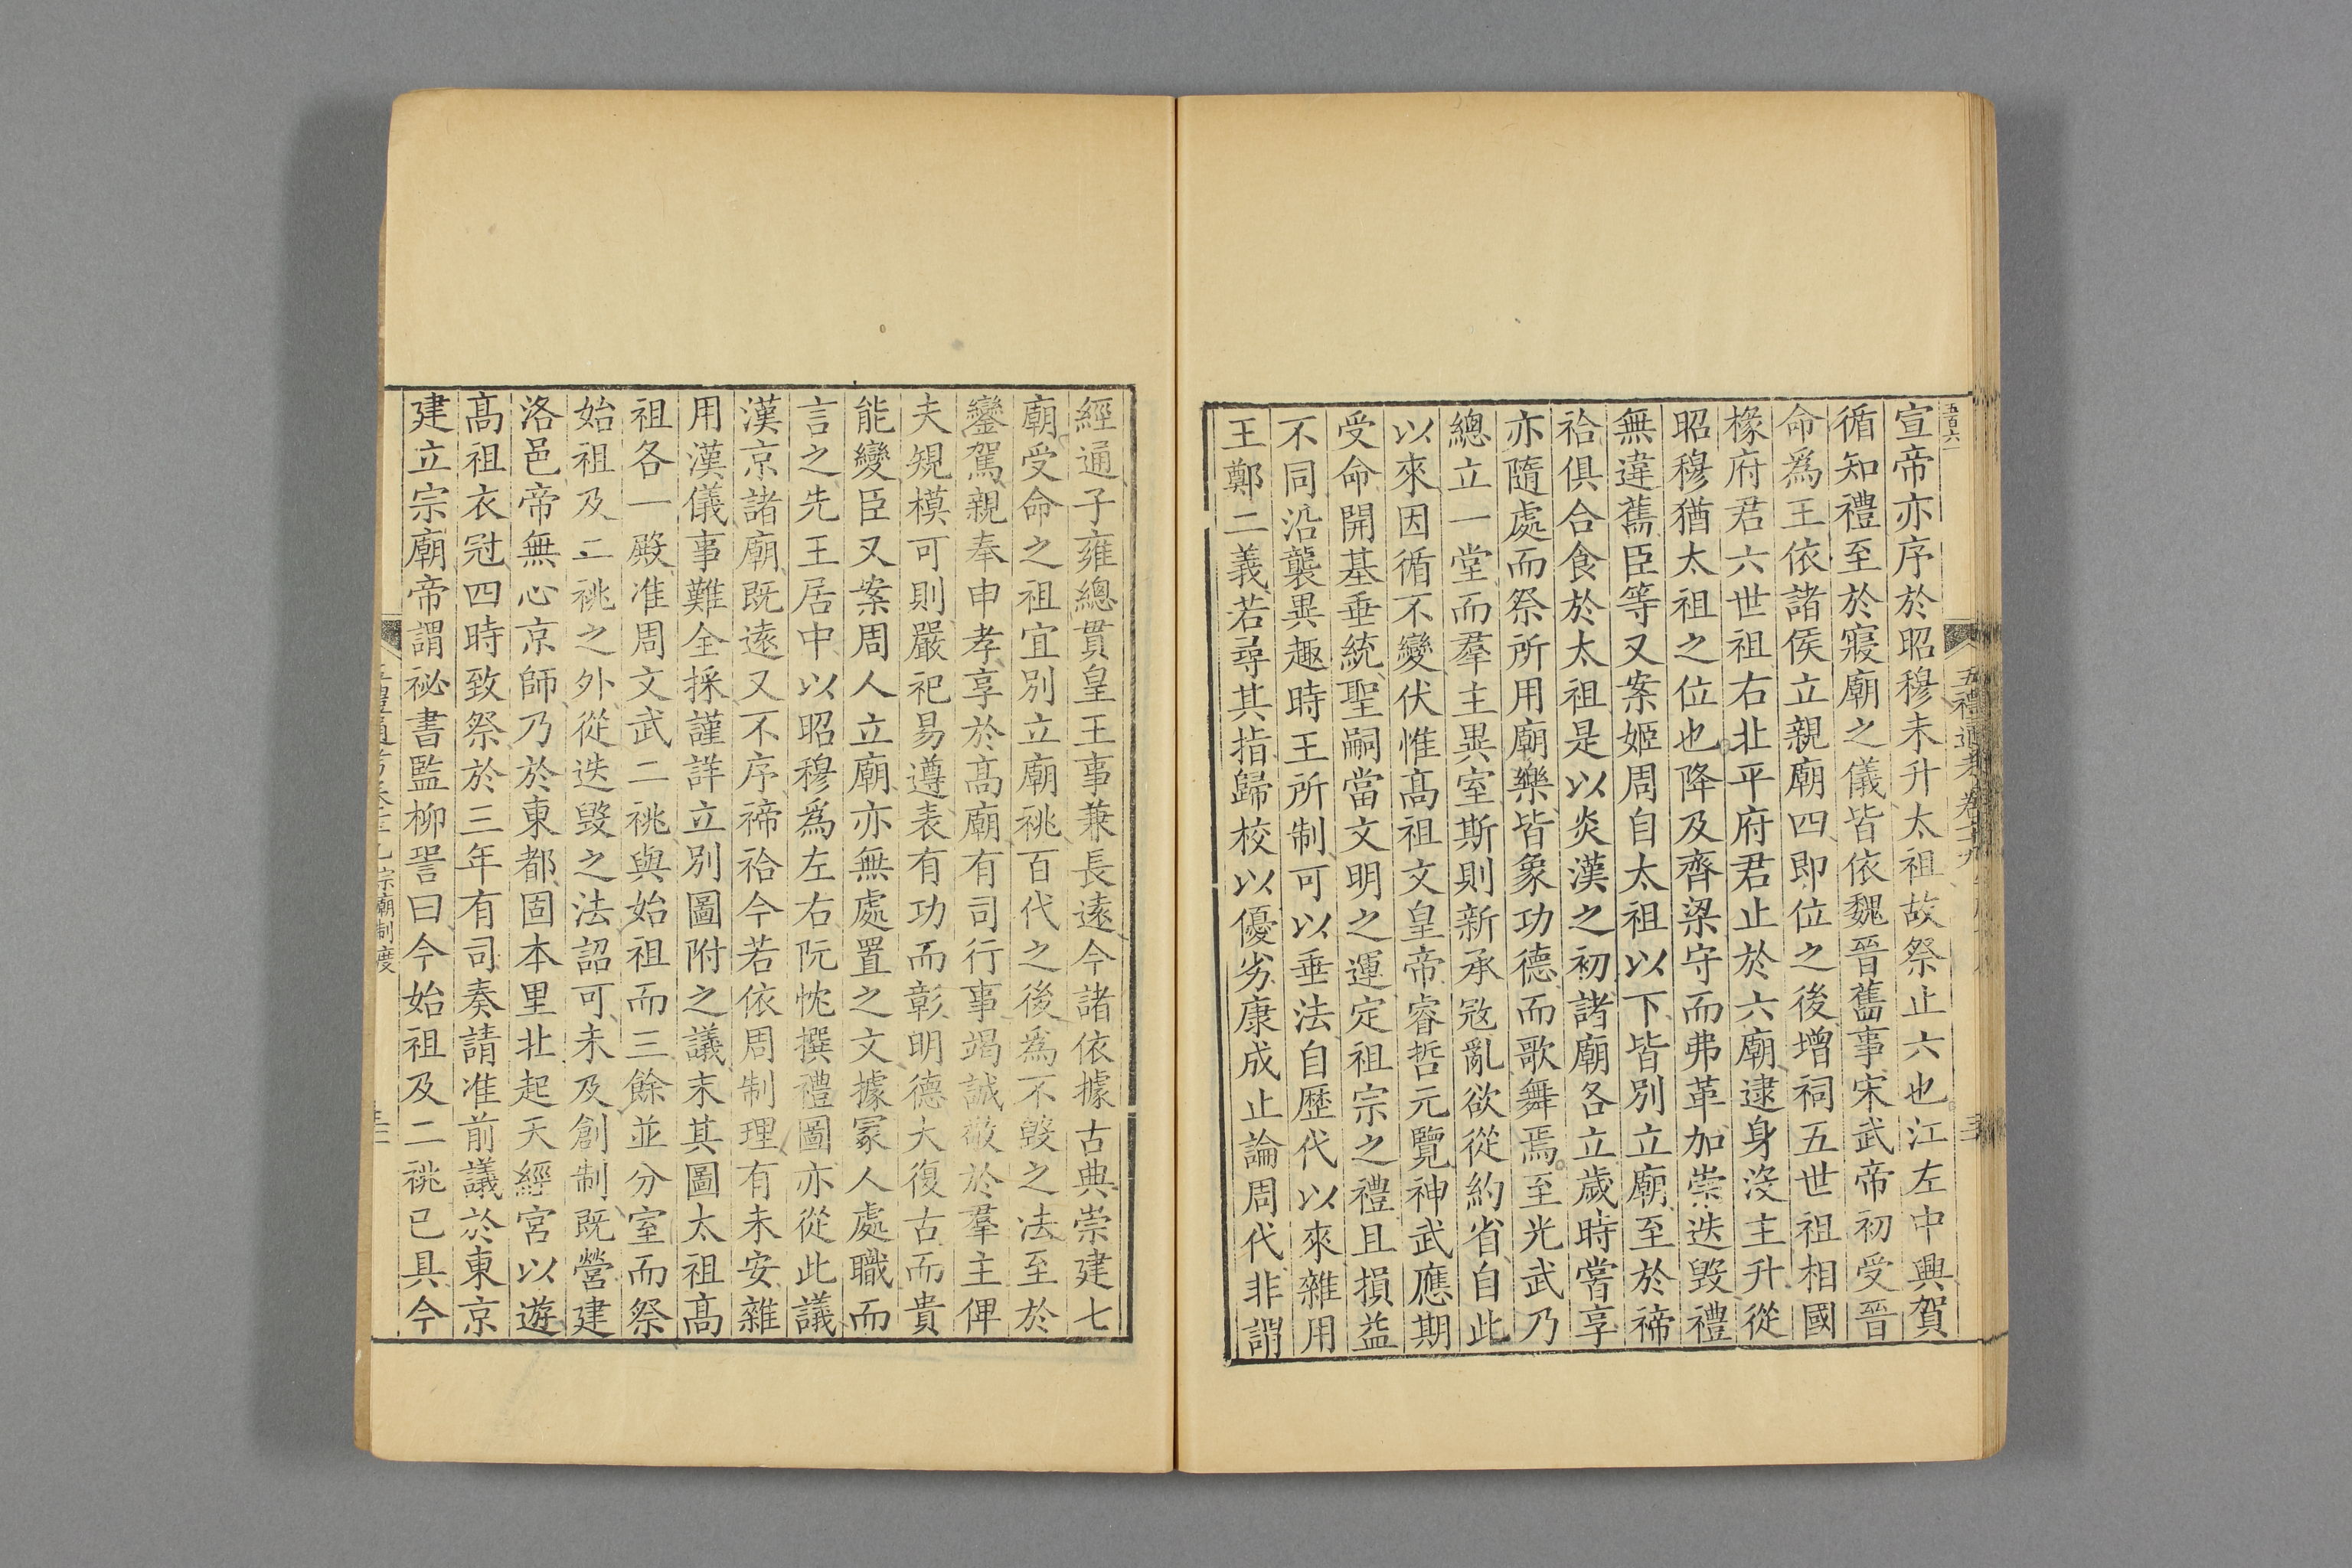 五百六
宣帝亦序於昭穆未升太祖故祭止六也江左中興賀
循知禮至於寢廟之儀皆依魏晉舊事宋武帝初受晉
命爲王依諸侯立親廟四即位之後增祠五世祖相國
椽府君六世祖右北平府君止於六廟逮身沒主升從
昭穆猶太祖之位也降及齊梁守而弗革加崇迭毀禮
無違舊臣等又案姬周自太祖以下皆別立廟至於禘
祫俱合食於太祖是以炎漢之初諸廟各立歲時嘗享
亦隨處而祭所用廟樂皆象功德而歌舞焉至光武乃
總立一堂而羣主異室斯則新承宼亂欲從約省自此
以來因循不變伏惟髙祖文皇帝睿哲元覽神武應期
受命開基垂統聖嗣當文明之運定祖宗之禮且損益
不同沿襲異趣時王所制可以垂法自歴代以來雜用
王鄭二義若尋其指歸校以優劣康成止論周代非謂
經通子雍總貫皇王事兼長遠今諸依據古典崇建七
廟受命之祖宜別立廟祧百代之後爲不毀之法至於
鑾駕親奉申孝享於髙廟有司行事竭誠敬於羣主俾
夫規模可則嚴祀易遵表有功而彰明德大復古而貴
能變臣又案周人立廟亦無處置之文據冡人處職而
言之先王居中以昭穆爲左右阮忱撰禮圖亦從此議
漢京諸廟既遠又不序禘祫今若依周制理有未安雜
用漢儀事難全採謹詳立別圖附之議末其圖太祖髙
祖各一殿准周文武二祧與始祖而三餘並分室而祭
始祖及二祧之外從迭毀之法詔可未及創制既營建
洛邑帝無心京師乃於東都固本里北起天經宮以遊
髙祖衣冠四時致祭於三年有司奏請准前議於東京
建立宗廟帝謂祕書監柳䛒曰今始祖及二祧已具今